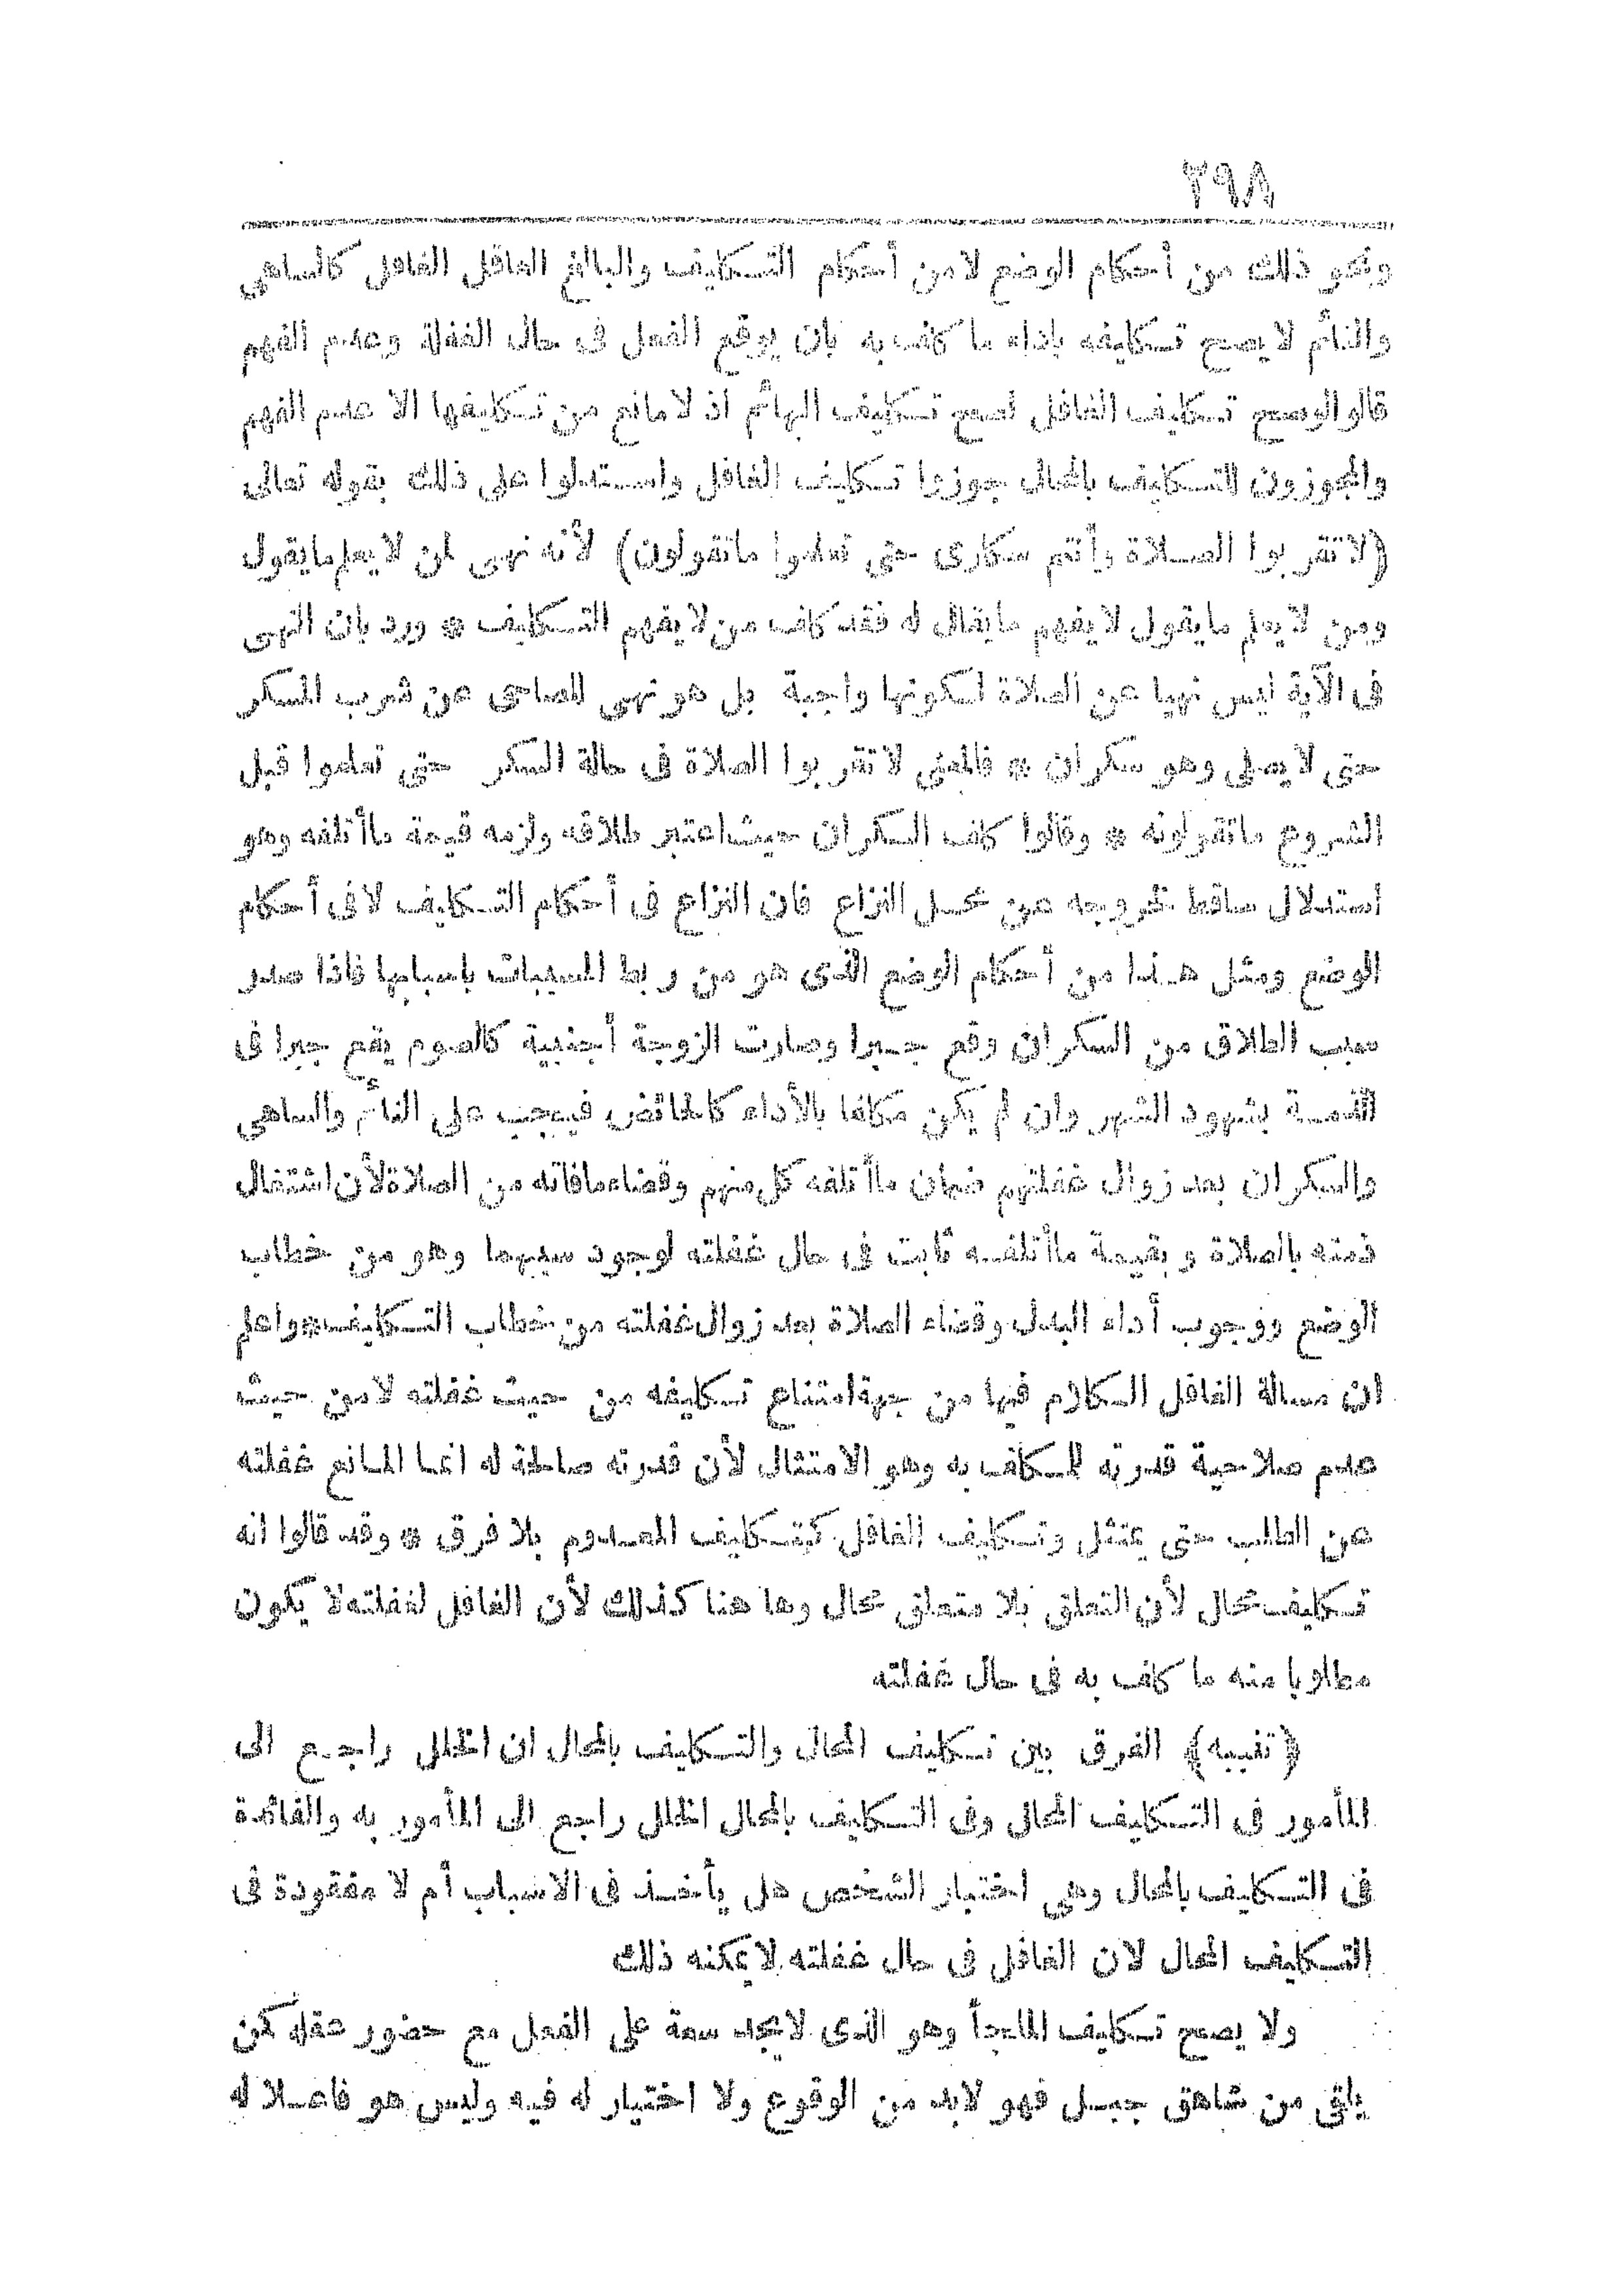 ٣٩٨
ونحو ذلك من أحكام الوضع لا من أحكام التكليف والبالغ العاقل الغافل كالساهى
والنائم لا يصح تكليفه باداء ما كلف به بان يوقع الفعل فى حال الغفلة وعدم الفهم
قالوا لو صح تكليف الغافل لصح تكليف البهائم اذ لا مانع من تكليفها الا عدم الفهم
والمجوزون للتكليف بالمحال جوزوا تكليف الغافل واستدلوا على ذلك بقوله تعالى
(لا تقربوا الصلاة وأنتم سكارى حتى تعلموا ما تقولون) لأنه نهى لمن لا يعلم ما يقول
ومن لا يعلم ما يقول لا يفهم ما يقال له فقد كلف من لا يفهم التكليف * ورد بان النهى
فى الآية ليس نهيا عن الصلاة لكونها واجبة بل هو نهى للصاحى عن شرب المسكر
حتى لا يصلى وهو سكران * فالمعنى لا تقربوا الصلاة فى حالة السكر حتى تعلموا قبل
الشروع ما تقولونه * وقالوا كلف السكران حيث اعتبر طلاقه ولزمه قيمة ما أتلفه وهو
استدلال ساقط لخروجه عن محل النزاع فان النزاع فى أحكام التكليف لا فى أحكام
الوضع ومثل هذا من أحكام الوضع الذى هو من ربط المسببات باسبابها فاذا صدر
سبب الطلاق من السكران وقع جبرا وصارت الزوجة أجنبية كالصوم يقع جبرا فى
الذمة بشهود الشهر وان لم يكن مكلفا بالأداء كالحائض فيجب على النائم والساهى
والسكران بعد زوال غفلتهم ضمان ما أتلفه كل منهم وقضاء ما فاته من الصلاة لأن اشتغال
ذمته بالصلاة و بقيمة ما أتلفه ثابت فى حال غفلته لوجود سببهما وهو من خطاب
الوضع ووجوب أداء البدل وقضاء الصلاة بعد زوال غفلته من خطاب التكليف * واعلم
ان مسالة الغافل الكلام فيها من جهة امتناع تكليفه من حيث غفلته لا من حيث
عدم صلاحية قدرته للمكلف به وهو الامتثال لأن قدرته صالحة له انما المانع غفلته
عن الطلب حتى يمتثل وتكليف الغافل كتكليف المعدوم بلا فرق * وقد قالوا انه
تكليف محال لأن التعلق بلا متعلق محال وها هنا كذلك لأن الغافل لغفلته لا يكون
مطلوبا منه ما كلف به فى حال غفلته
(تنبيه) الفرق بين تكليف المحال والتكليف بالمحال ان الخلل راجع الى
المأمور فى التكليف المحال وفى التكليف بالمحال الخلل راجع الى المأمور به والفائدة
فى التكليف بالمحال وهى اختبار الشخص هل يأخذ فى الاسباب أم لا مفقودة فى
التكليف المحال لان الغافل فى حال غفلته لا يمكنه ذلك
ولا يصح تكليف الملجأ وهو الذى لا يجد سعة على الفعل مع حضور عقله كمن
يلقى من شاهق جبل فهو لابد من الوقوع ولا اختيار له فيه وليس هو فاعلا له